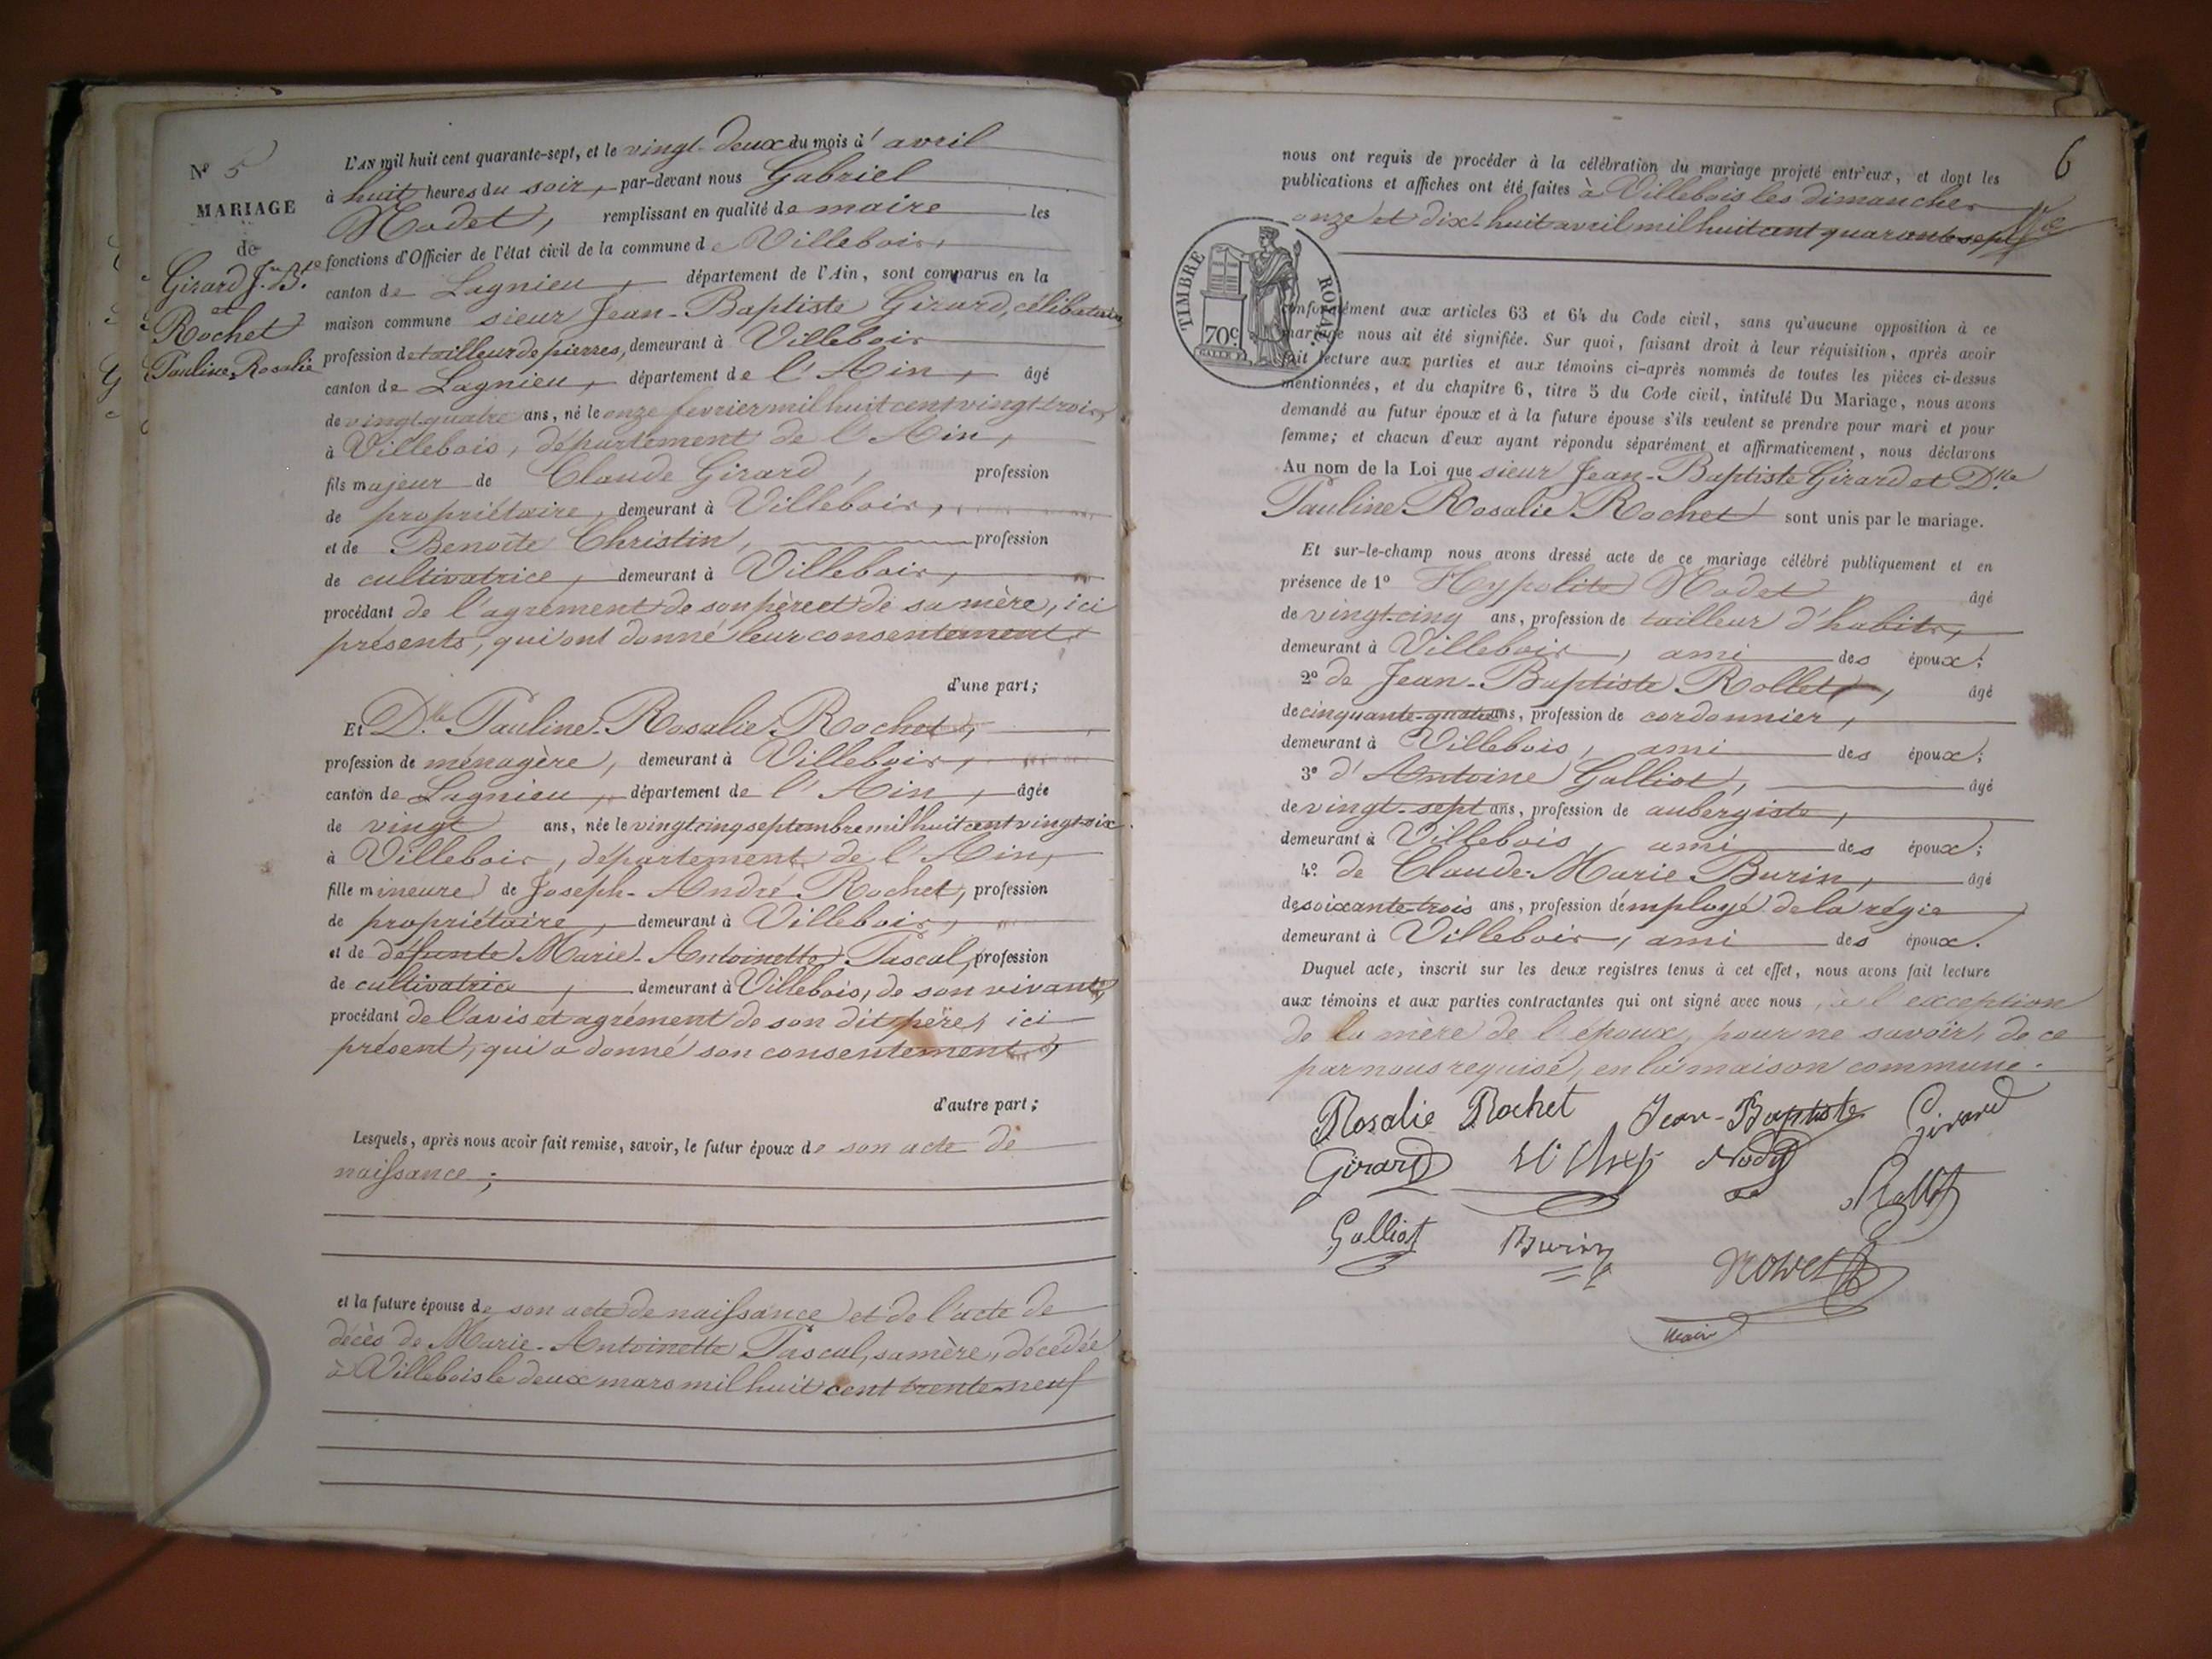 Nº 5
MARIAGE
de
Girard J.n B.te
et
Rochet
Pauline-Rosalie
L'AN mil huit cent quarante-sept, et le vingt-deux du mois d'avril
à huit heures du soir, par-devant nous Gabriel
Nodet, remplissant en qualité de maire les
fonctions d'Officier de l'état civil de la commune de Villebois,
canton de Lagnieu, département de l'Ain, sont comparus en la
maison commune sieur Jean-Baptiste Girard, célibataire,
profession de tailleur de pierres, demeurant à Villebois
canton de Lagnieu, département de l'Ain, âgé
de vingt-quatre ans, né le onze fevrier mil huit cent vingt-trois,
à Villebois, département de l'Ain,
fils majeur de Claude Girard, profession
de propriétaire, demeurant à Villebois,
et de Benoîte Christin, profession
de cultivatrice, demeurant à Villebois,
procédant de l'agrément de son père et de sa mère, ici
présents, qui ont donné leur consentement
d'une part;
Et D.lle Pauline-Rosalie Rochet,
profession de ménagère, demeurant à Villebois,
canton de Lagnieu, département de l'Ain, âgée
de vingt ans, née le vingt cinq septembre mil huit cent vingt-six
à Villebois, département de l'Ain,
fille mineure de Joseph-André Rochet, profession
de propriétaire, demeurant à Villebois,
et de défunte Marie-Antoinette Pascal, profession
de cultivatrice, demeurant à Villebois, de son vivant,
procédant de l'avis et agrément de son dit père, ici
présent, qui a donné son consentement
d'autre part;
Lesquels, après nous avoir fait remise, savoir, le futur époux de son acte de
naissance;
et la future épouse de son acte de naissance et de l'acte de
décès de Marie-Antoinette Pascal, sa mère, décédée
à Villebois le deux mars mil huit cent trente-neuf
6
nous ont requis de procéder à la célébration du mariage projeté entr'eux, et dont les
publications et affiches ont été faites à Villebois les dimanches
onze et dix-huit avril mil huit cent quarante-sept
TIMBRE ROYAL
70c
conformément aux articles 63 et 64 du Code civil, sans qu'aucune opposition à ce
mariage nous ait été signifiée. Sur quoi, faisant droit à leur réquisition, après avoir
fait lecture aux parties et aux témoins ci-après nommés de toutes les pièces ci-dessus
mentionnées, et du chapitre 6, titre 5 du Code civil, intitulé Du Mariage, nous avons
demandé au futur époux et à la future épouse s'ils veulent se prendre pour mari et pour
femme; et chacun d'eux ayant répondu séparément et affirmativement, nous déclarons
Au nom de la Loi que sieur Jean-Baptiste Girard et D.lle
Pauline-Rosalie Rochet sont unis par le mariage.
Et sur-le-champ nous avons dressé acte de ce mariage célébré publiquement et en
présence de 1º Hypolite Nodet âgé
de vingt-cinq ans, profession de tailleur d'habits,
demeurant à Villebois, ami des époux;
2º de Jean-Baptiste Rollet, âgé
de cinquante-quatre ans, profession de cordonnier,
demeurant à Villebois, ami des époux;
3º d'Antoine Galliot, âgé
de vingt-sept ans, profession de aubergiste,
demeurant à Villebois, ami des époux;
4º de Claude-Marie Burin, âgé
de soixante-trois ans, profession d'employé de la régie
demeurant à Villebois, ami des époux.
Duquel acte, inscrit sur les deux registres tenus à cet effet, nous avons fait lecture
aux témoins et aux parties contractantes qui ont signé avec nous, à l'exception
de la mère de l'époux, pour ne savoir, de ce
par nous requise, en la maison commune.
Rosalie Rochet Jean-Baptiste Girard
Girard Nodet Rollet
Galliot Burin
Maire